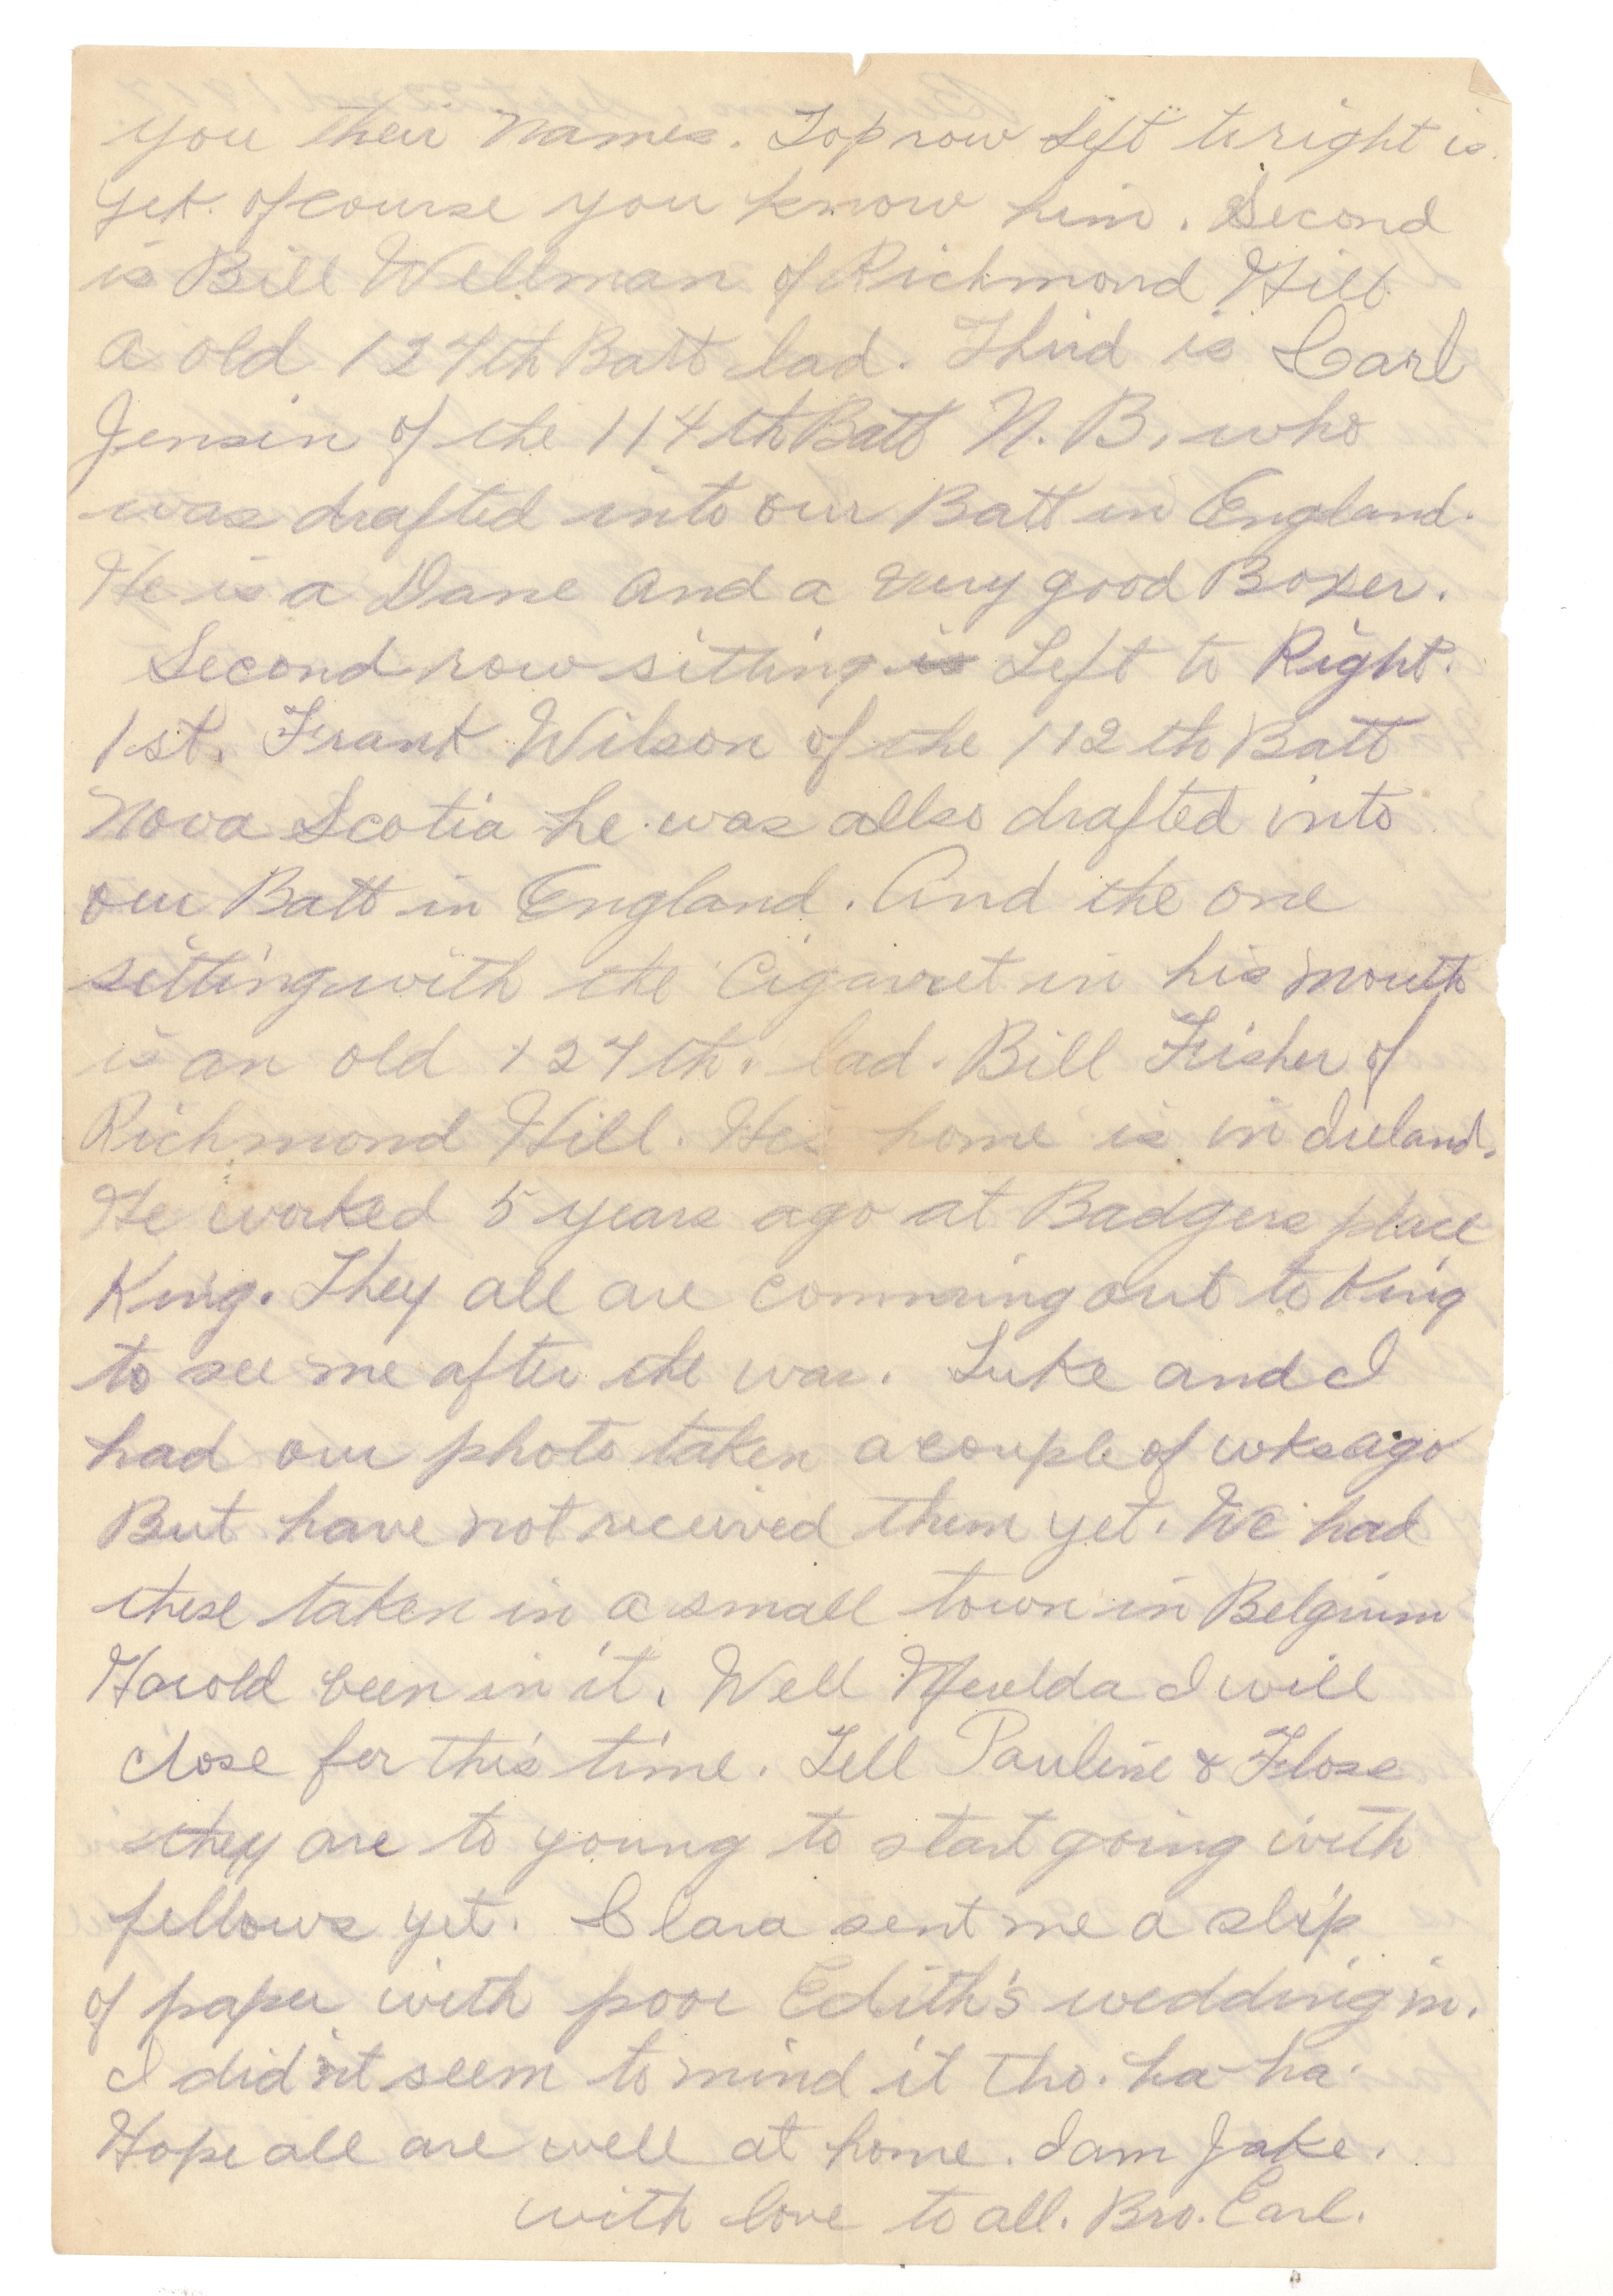 you their names. Top row Left to right is
yet. ofcourse you know him. Second
is Bill Wellman of Richmond Hill.
a old 124th Batt lad. Third is Carl
Jensen of the 114th Batt N.B. who
was drafted into our Batt in England.
He is a Dane and a very good Boxer.
Second row sitting is Left to Right.
1st. Frank Wilson of the 112th Batt
Nova Scotia he was allso drafted into
our Batt in England. And the one
sitting with the Cigarret in his mouth
is an old 124th. lad. Bill Frisher of
Richmond Hill. His home is in Ireland.
He worked 5 years ago at Badgers place
King. They all are comming out to King
to see me after the war. Luke and I
had our photo taken a couple of wks ago
But have not received them yet. We had
these taken in a small town in Belgium
Harold been in it. Well I will
close for this time. Tell Pauline & Floss
they are to young to start going with
fellows yet. Clara sent me a slip
of paper with poor Edith's wedding in.
I didn't seem to mind it tho. ha-ha.
Hope all are well at home. I am Jake.
with love to all. Bro. Earl.